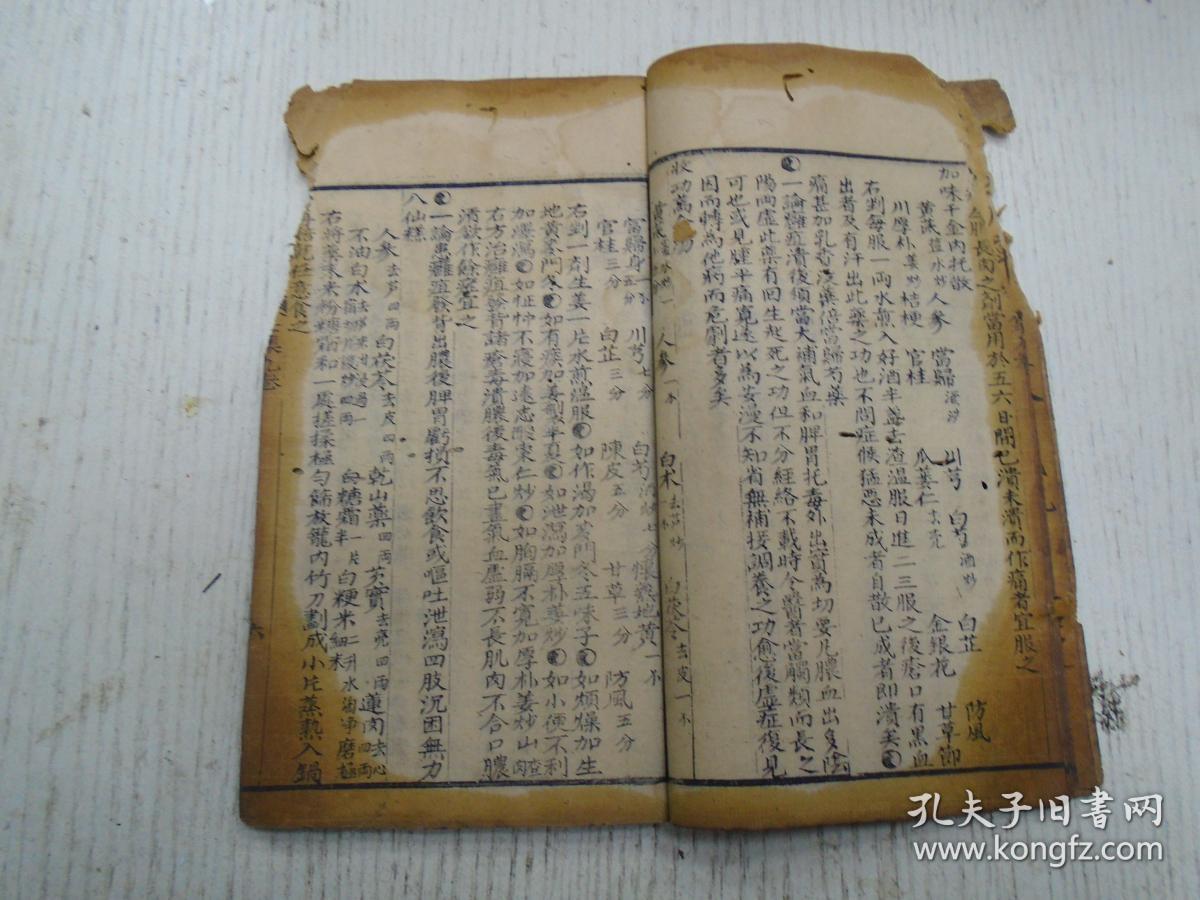 肌長肉之劑當用於五六日間已潰未潰而作痛者宜服之
加味千金內托散
黃芪 鹽水炒 人參 當歸 酒洗 川芎 白芍 酒炒 白芷 防風
川厚朴 姜炒 桔梗 官桂 瓜蔞仁 去壳 金銀花 甘草節
右剉每服一兩水煎入好酒半盞去渣溫服日進二三服之後瘡口有黑血
出者及有汗出此藥之功也不問症候猛惡未成者自散已成者即潰矣
痛甚加乳香沒藥倍當歸芍藥
一論癰疽潰後須當大補氣血和脾胃托毒外出實為切要凡膿血出多陰
陽兩虛此藥有回生起死之功但不分經絡不載時令醫者當觸類而長之
可也或見腫半痛寬遂以為安漫不知省無補接調養之功愈後虛症復見
因而轉為他病而危劇者多矣
收功萬全
人參 白朮 去芦炒 白茯苓 去皮
當歸身 川芎 七分 白芍 酒炒七分 懷熟地黃
官桂 三分 白芷 三分 陳皮 五分 甘草 三分 防風 五分
右剉一劑生姜一片水煎溫服如作渴加麥門冬五味子如煩燥加生
地黃麥門冬如有痰加姜製半夏如泄瀉加厚朴姜炒如小便不利
加澤瀉如怔忡不寢加遠志酸棗仁炒如胸膈不寬加厚朴姜炒山查肉
右方治癰疽發背諸瘡毒潰膿後毒氣已盡氣血虛弱不長肌肉不合口膿
清歛作餘症宜之
一論患癰疽發背出膿後脾胃虧損不思飲食或嘔吐泄瀉四肢沉困無力
八仙糕
人參 去芦四兩 白茯苓 去皮四兩 乾山藥 四兩 芡實 去壳四兩 蓮肉 去心四兩
不油白朮 白糖霜 半 白粳米 二升水淘净磨極細末
右將藥末米粉糖霜和一處搓揉極勻篩放籠內竹刀劃成小片蒸熟入鍋